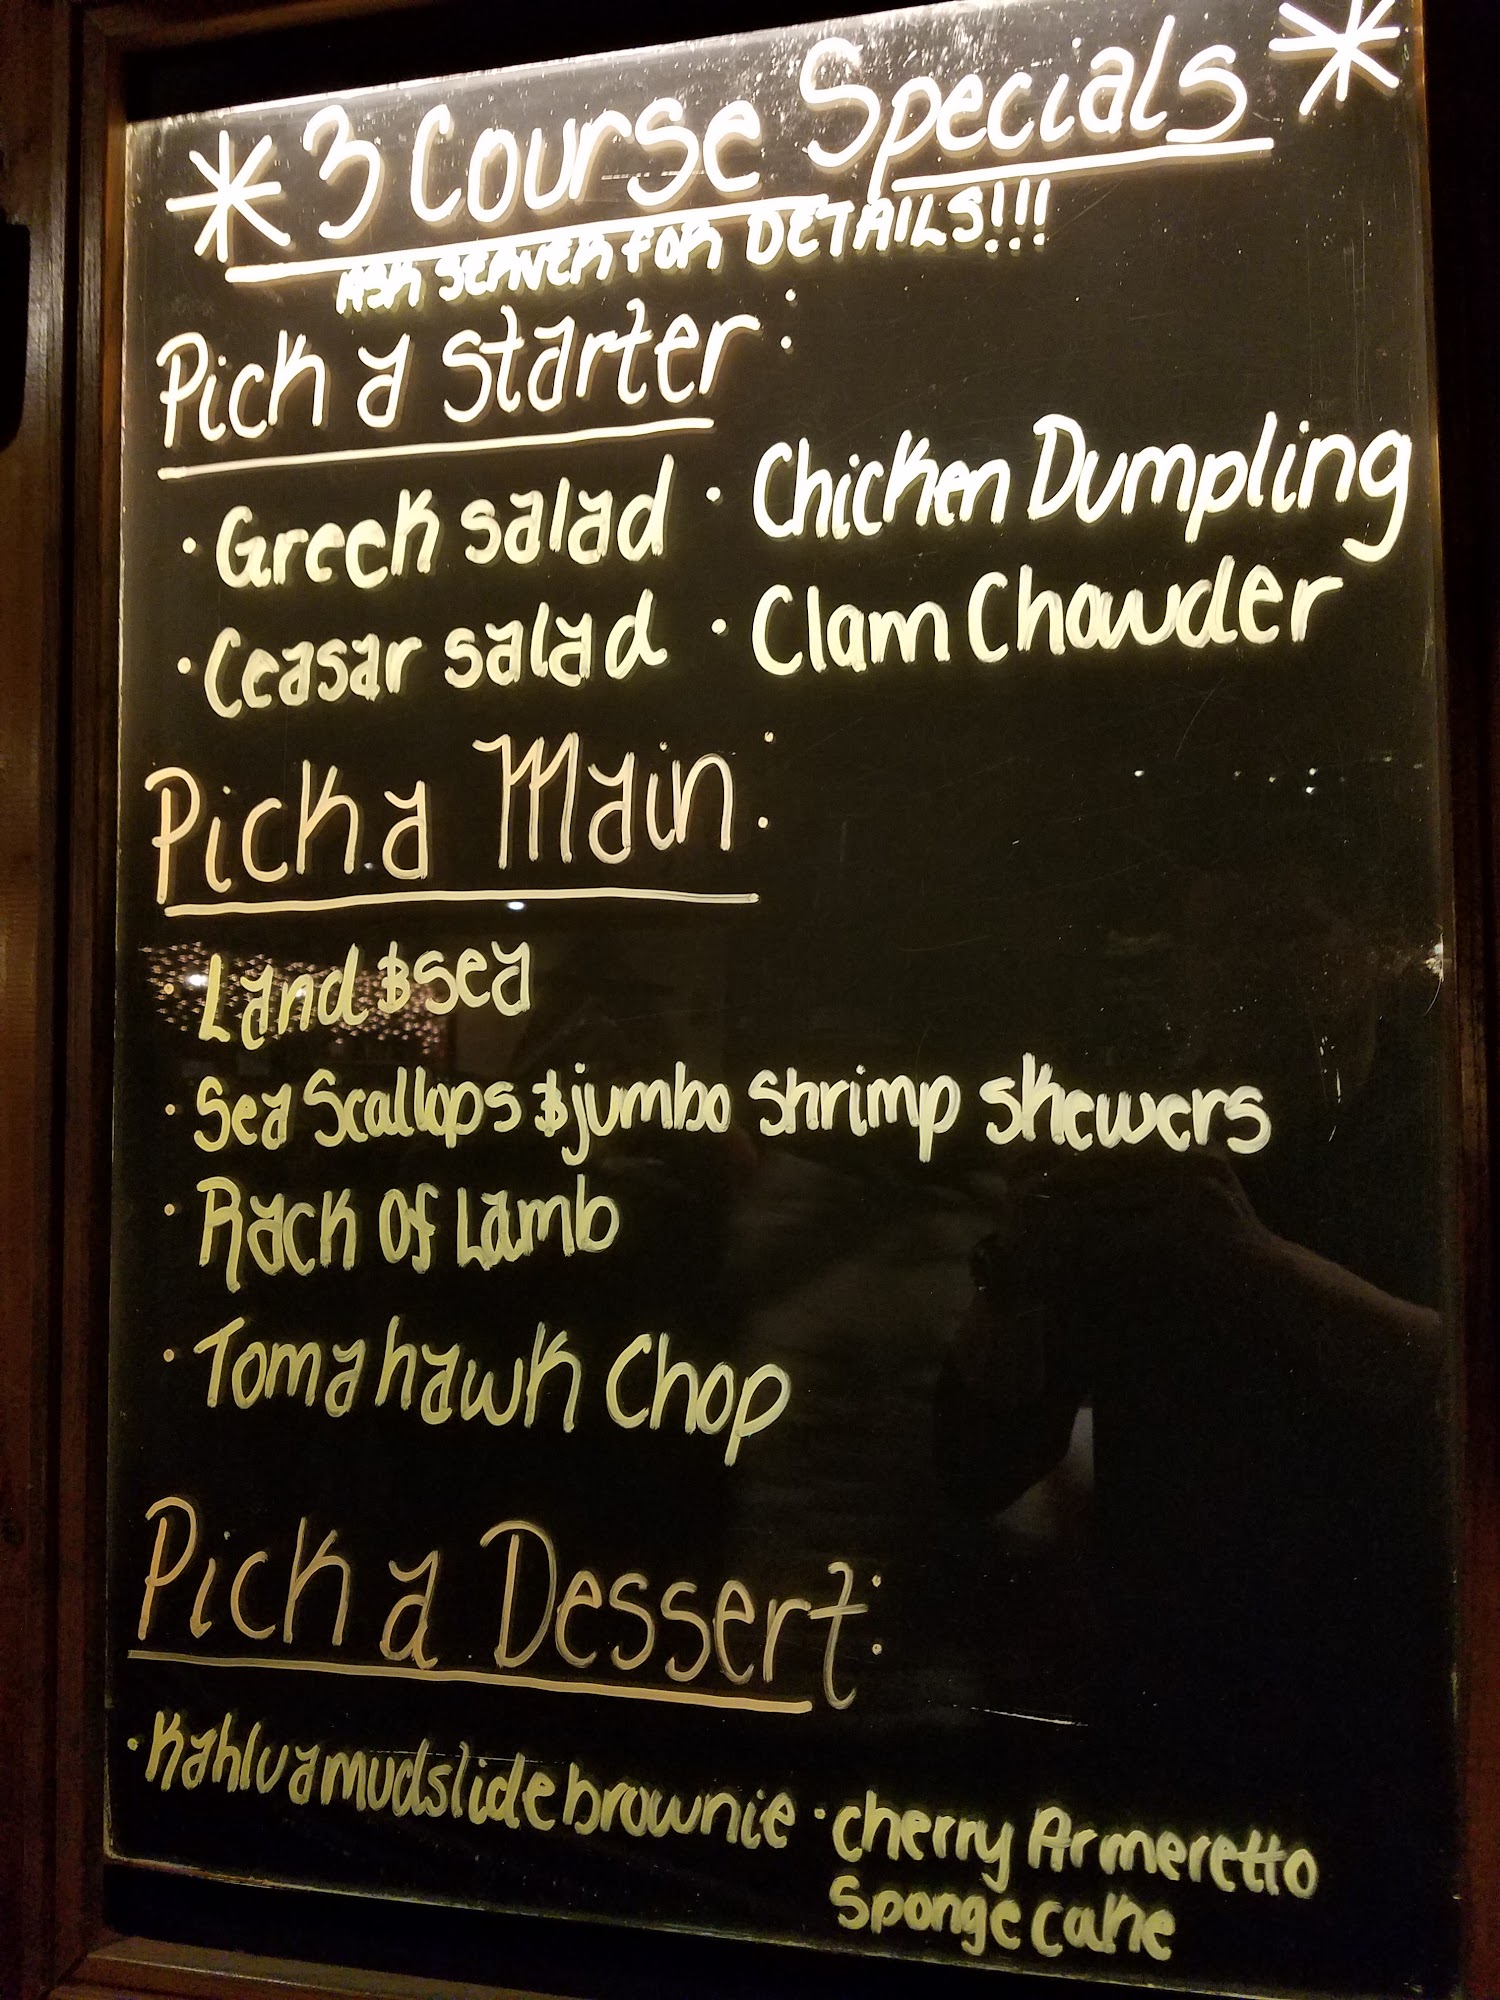 * 3 Course Specials *
ASK SERVER FOR DETAILS!!!
Pick a starter:
• Greek salad • Chicken Dumpling
• Ceasar salad • Clam Chowder
Pick a Main:
• Land & sea
• Sea Scallops & jumbo shrimp skewers
• Rack Of Lamb
• Tomahawk Chop
Pick a Dessert:
• Kahlua mudslide brownie • cherry Armeretto
Sponge cake